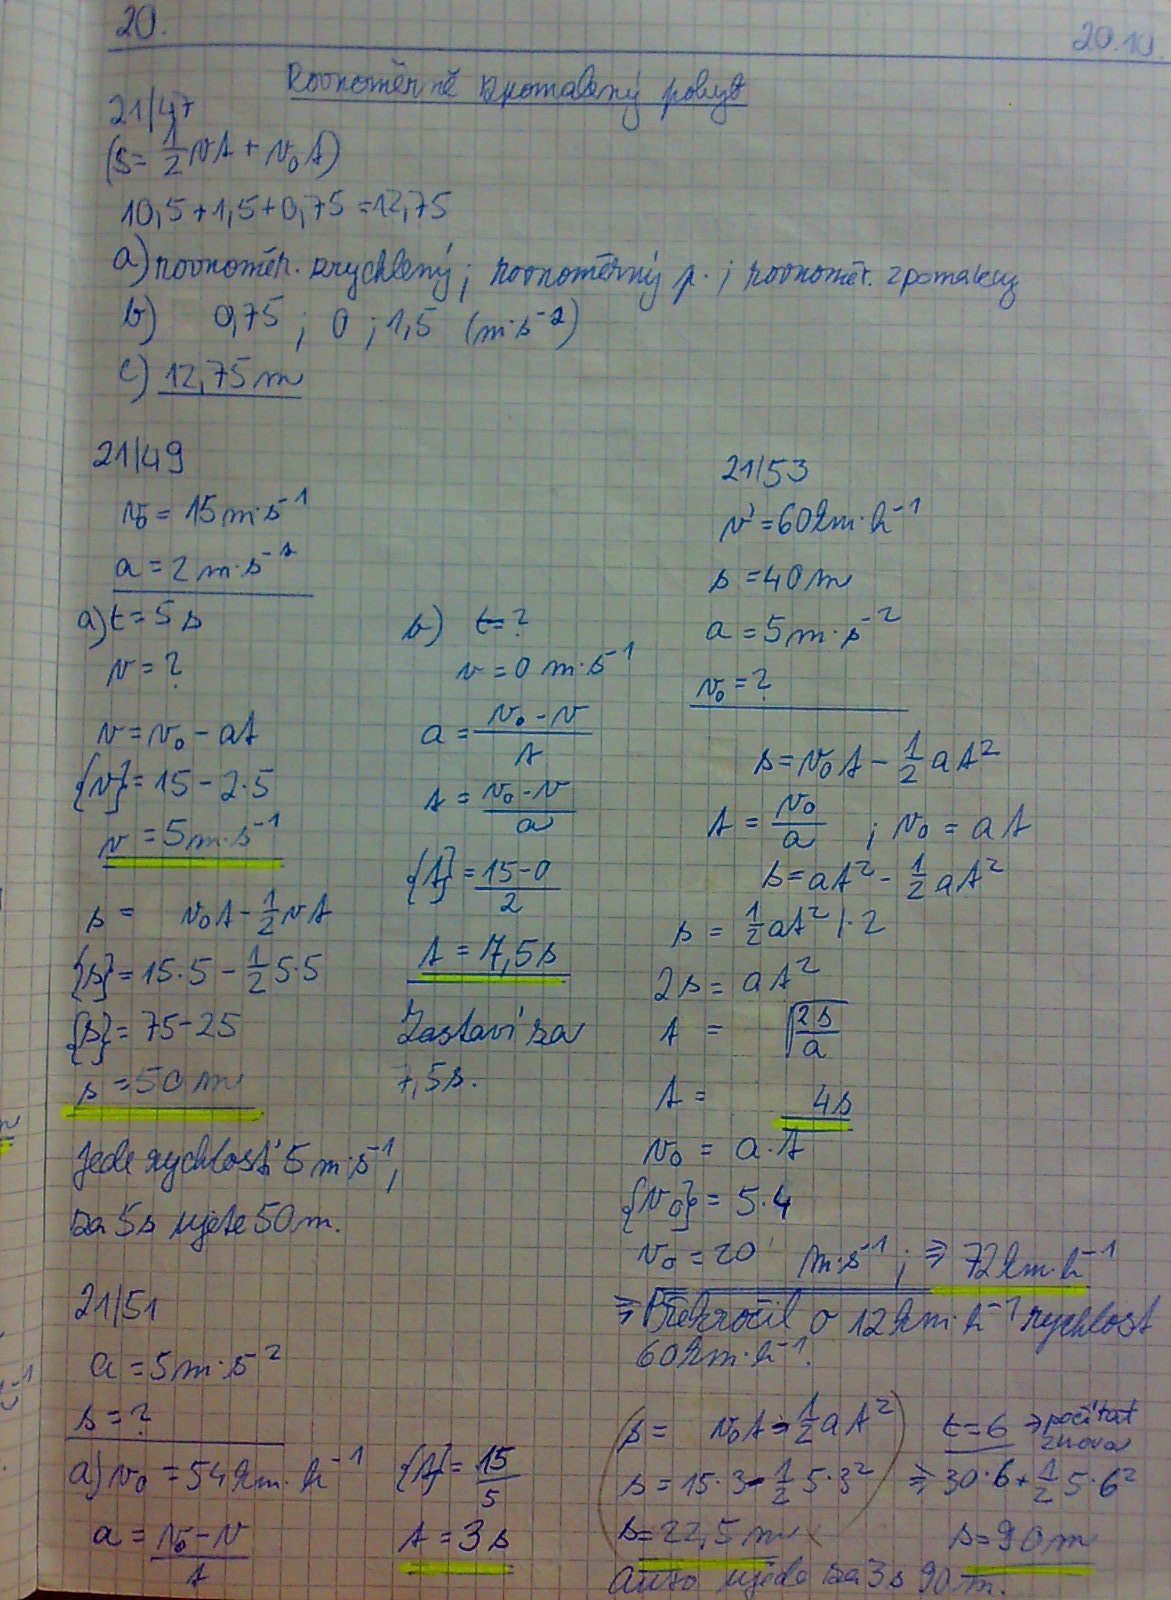 20.
20.10.
Rovnoměrně zpomalený pohyb
21/47
(s = 1/2 vt + v₀t)
10,5 + 1,5 + 0,75 = 12,75
a) rovnoměr. zrychlený; rovnoměrný p.; rovnoměr. zpomalený
b) 0,75 ; 0 ; 1,5 (m·s⁻²)
c) 12,75 m
21/49
v₀ = 15 m·s⁻¹
a = 2 m·s⁻²
a) t = 5 s
v = ?
v = v₀ - at
{v} = 15 - 2·5
v = 5 m·s⁻¹
s = v₀t - 1/2 vt
{s} = 15·5 - 1/2 5·5
{s} = 75 - 25
s = 50 m
Jede rychlostí 5 m·s⁻¹,
za 5s ujete 50 m.
b) t = ?
v = 0 m·s⁻¹
a = (v₀ - v)/t
t = (v₀ - v)/a
{t} = (15 - 0)/2
t = 7,5 s
Zastaví za
7,5 s.
21/51
a = 5 m·s²
s = ?
a) v₀ = 54 km·h⁻¹
a = (v₀ - v)/t
{t} = 15/5
t = 3 s
21/53
v' = 60 km·h⁻¹
s = 40 m
a = 5 m·s⁻²
v₀ = ?
s = v₀t - 1/2 at²
t = v₀/a ; v₀ = at
s = at² - 1/2 at²
s = 1/2 at² /·2
2s = at²
t = √(2s/a)
t = 4s
v₀ = a·t
{v₀} = 5·4
v₀ = 20 m·s⁻¹ ; ⇒ 72 km·h⁻¹
⇒ Překročil o 12 km·h⁻¹ rychlost
60 km·h⁻¹.
(s = v₀t - 1/2 at²)
s = 15·3 - 1/2 5·3²
s = 22,5 m
t = 6 → počítat
znova
⇒ 30·6 + 1/2 5·6²
s = 90 m
Auto ujede za 3s 90 m.